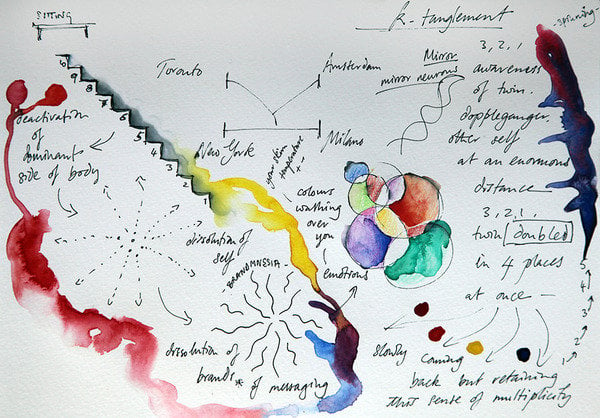 SITTING
k-tanglement
-spinning-
Toronto
Amsterdam
New York
Milano
Mirror
mirror neurons
3, 2, 1
awareness
of twin.
doppleganger.
other self
at an enormous
distance
3, 2, 1.
twin doubled
in 4 places
at once —
slowly coming
back but retaining
that sense of multiplicity
deactivation
of
dominant
side of body
9
8
7
6
5
4
3
2
1
your skin
temperature
+ -
colours
washing
over
you
emotions
dissolution of
self
BRANDMNESIA
dissolution of
brands * of messaging
5
4
3
2
1